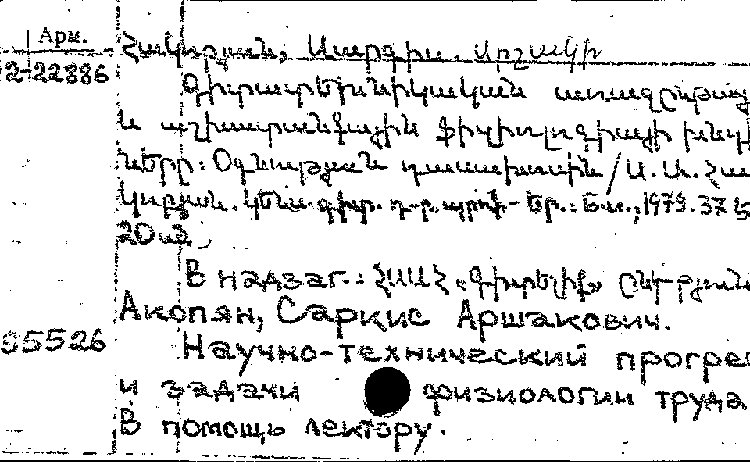 Арм.
Հակոբյան, Սարգիս Արշակի
2-22886
Գիտատեխնիկական առաջընթաց
և աշխատանքային ֆիզիոլոգիայի խնդի
ները: Օգնություն դասախոսին / Ս. Ա. Հա
կոբյան. կենս. գիտ. դ-ր, պրոֆ- Եր.: Բ.մ., 1979. 37 էջ
20սմ.
В надзаг.: ՀՍՍՀ «Գիտելիք» ընկրյան
Акопян, Саркис Аршакович.
55526
Научно-технический прогре
и задачи физиологии труда
В помощь лектору.